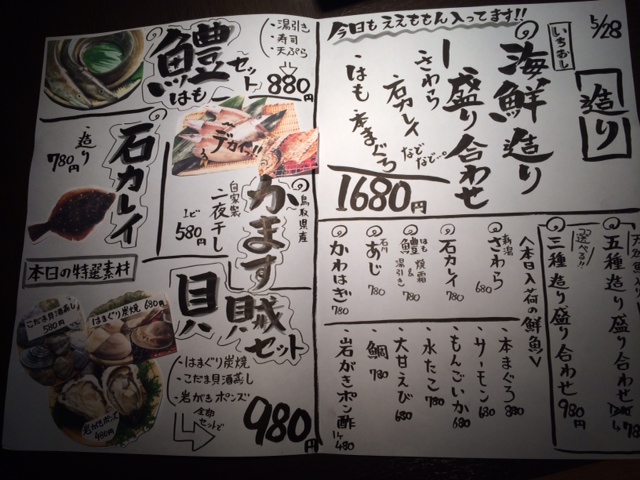 5/28
造り
今日もええもん入ってます!!
いちおし
海鮮造り
盛り合わせ
さわら
石カレイ
などなど…
はも 本まぐろ
1680円
五種造り盛り合わせ
選べる!!
三種造り盛り合わせ 980円
〈本日入荷の鮮魚〉
新潟
さわら 680
石カレイ 780
はも
鱧 焼霜&湯引き 780
石川
あじ 780
かわはぎ 780
・本まぐろ 880
・サーモン 680
・もんごいか 680
・水たこ 780
・大甘えび 680
・鯛 780
・岩がきポン酢 1ケ 480
鱧セット
はも
・湯引き
・寿司
・天ぷら
880円
石カレイ
・造り
780円
デカイッ!!
鳥取県産
かます
自家製
一夜干し
1ビ 580円
本日の特選素材
こだま貝酒蒸し
580円
はまぐり炭焼 680円
岩がきポンズ
480円
貝賊セット
・はまぐり炭焼
・こだま貝酒蒸し
・岩がきポンズ
全部セットで
980円